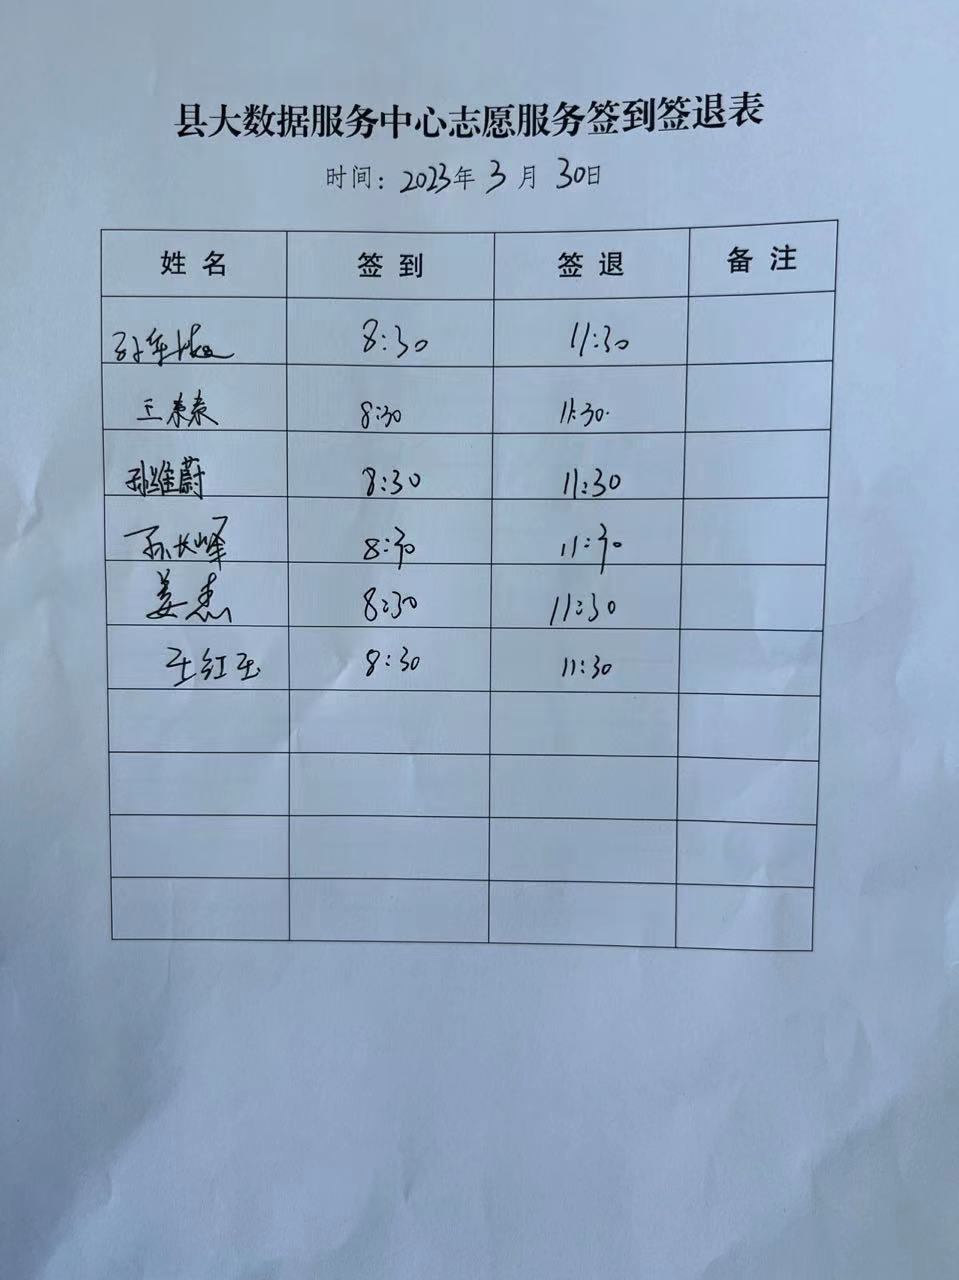 县大数据服务中心志愿服务签到签退表
时间：2023年 3 月 30日
姓名 签到 签退 备注
8:30 11:30
王 8:30 11:30
孙维蔚 8:30 11:30
孙长峰 8:30 11:30
姜杰 8:30 11:30
王红玉 8:30 11:30